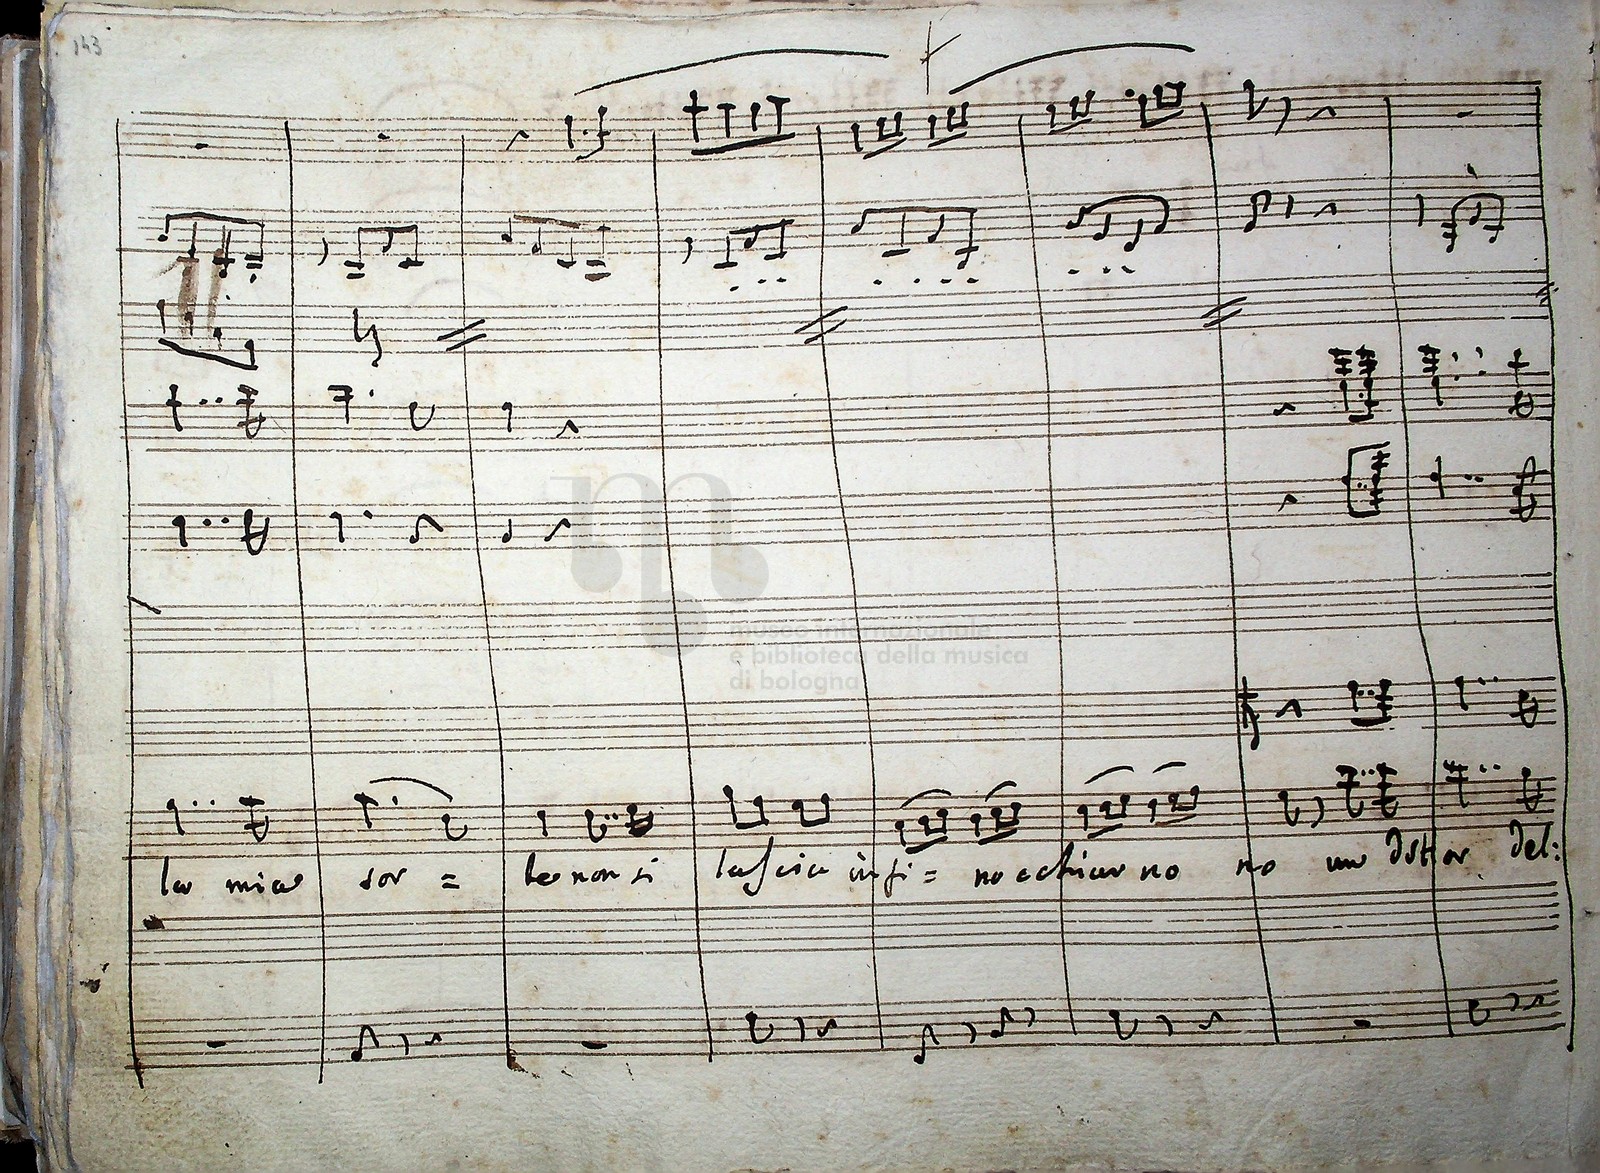 143
museo internazionale
e biblioteca della musica
di bologna
la mia sor = te non si lascia infi = no a chiu no no un